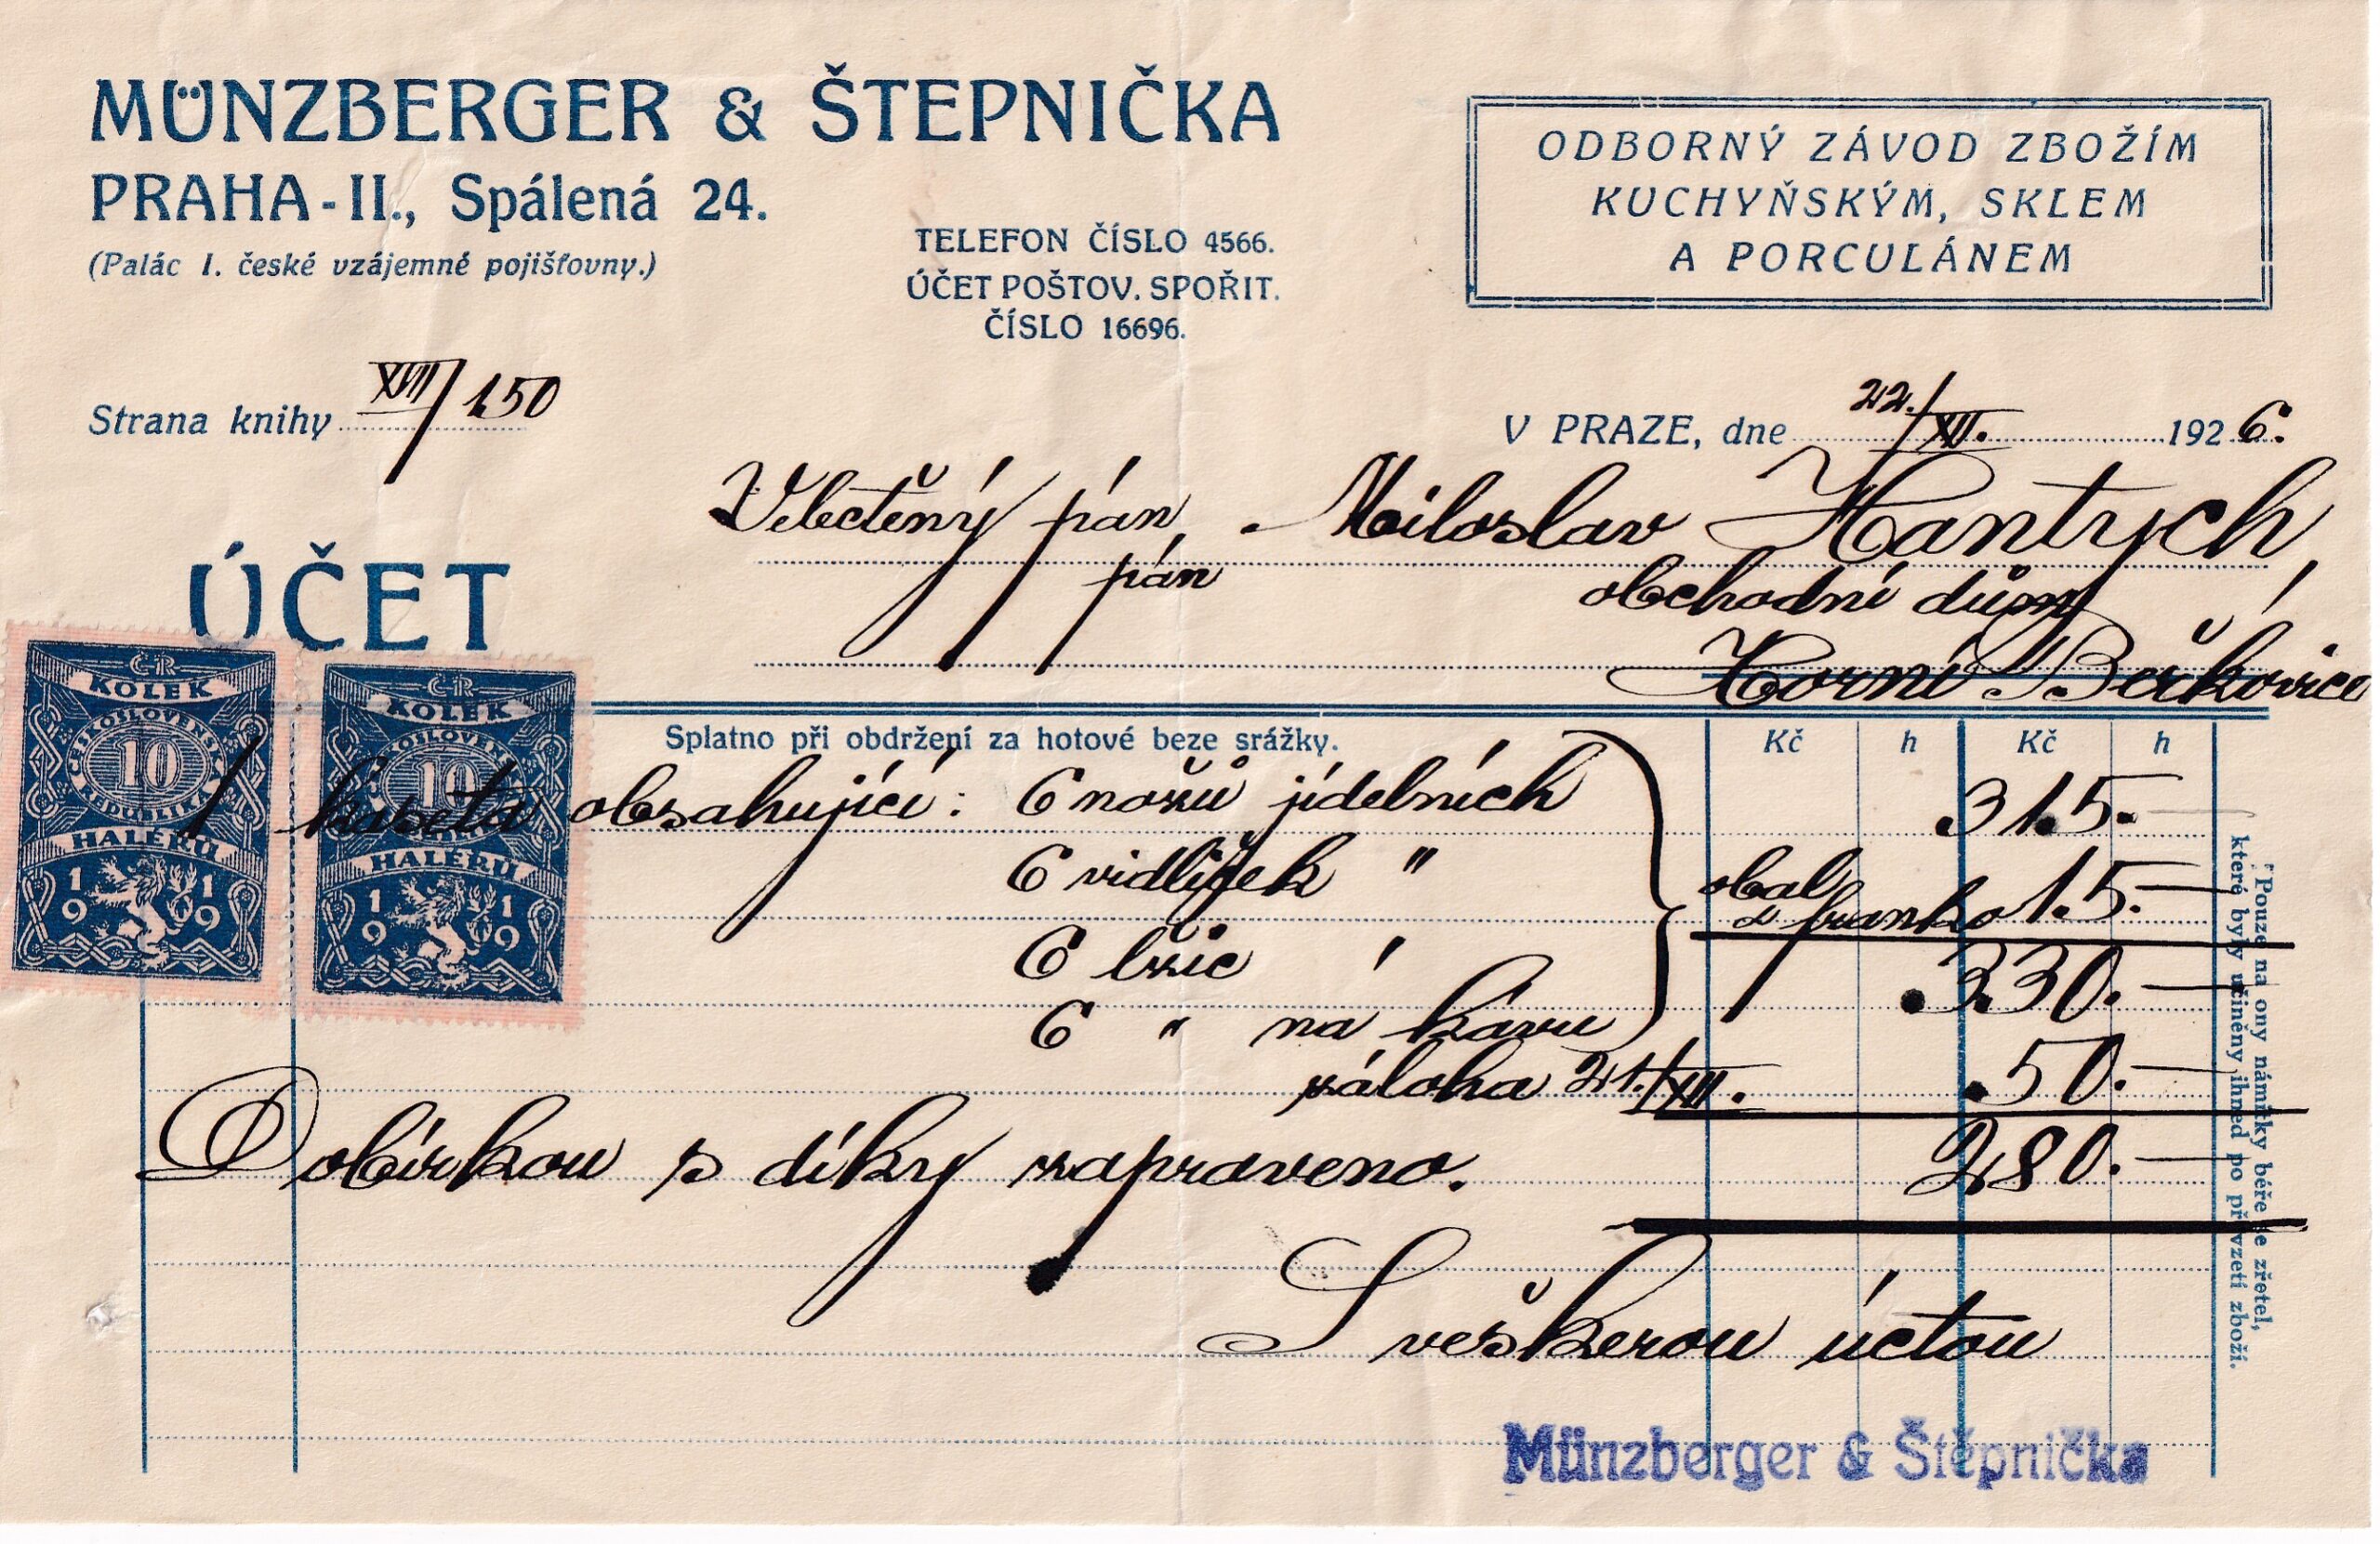 MÜNZBERGER & ŠTEPNIČKA
PRAHA-II., Spálená 24.
(Palác I. české vzájemné pojišťovny.)
TELEFON ČÍSLO 4566.
ÚČET POŠTOV. SPOŘIT.
ČÍSLO 16696.
ODBORNÝ ZÁVOD ZBOŽÍM
KUCHYŇSKÝM, SKLEM
A PORCULÁNEM
Strana knihy XVII/150
V PRAZE, dne 22./XII. 1926.
Velectěný pán, Miloslav Hantych,
pán obchodní dům
Horní Beřkovice
ÚČET
ČR
KOLEK
ČESKOSLOVENSKÁ
10
REPUBLIKA
HALÉŘŮ
1919
ČR
KOLEK
10
HALÉŘŮ
1919
Splatno při obdržení za hotové beze srážky.
Kč h Kč h
1 kaseta obsahující: 6 nožů jídelních 315.—
6 vidliček " obal
a franko 15.—
6 lžic ' 330.—
6 " na kávu
záloha 21./XII. 50.—
Dobírkou s díky zapraveno. 280.—
S veškerou úctou
Münzberger & Štěpnička
Pouze na ony námitky béře se zřetel,
které byly učiněny ihned po převzetí zboží.